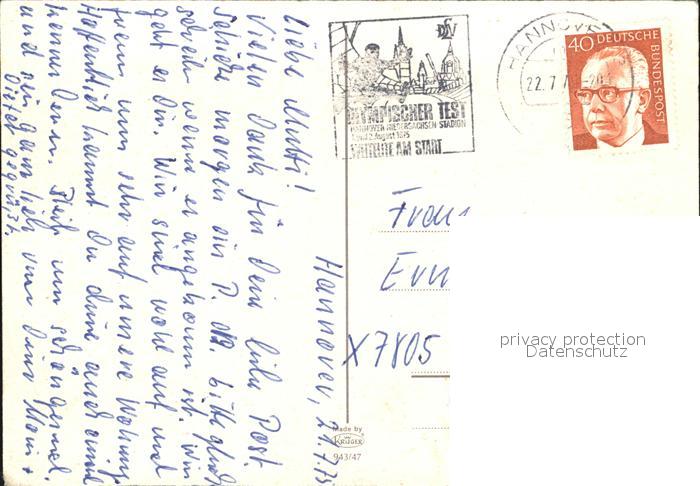 Hannover, 21.7.75
Liebe Mutti!
Vielen Dank für Dein liebe Post.
Schicke morgen ein P. ab. Bitte gleich
schreiben wenn es angekomm. ist. Wie
geht es Dir. Wir sind wohl auf und
freuen uns sehr auf unsere Wohnung
Hoffentlich kannst Du diese auch einmal
kennen lernen. Bleib nun schön gesund.
und sei ganz lieb von Deine
gegrüßt
DSV
OLYMPISCHER TEST
HANNOVER NIEDERSACHSEN STADION
1. und 2. August 1975
AM START
HANNOVE
22.7.7
40 DEUTSCHE
BUNDESPOST
Frau
X7805
Made by
KRÜGER
943/47
privacy protection
Datenschutz